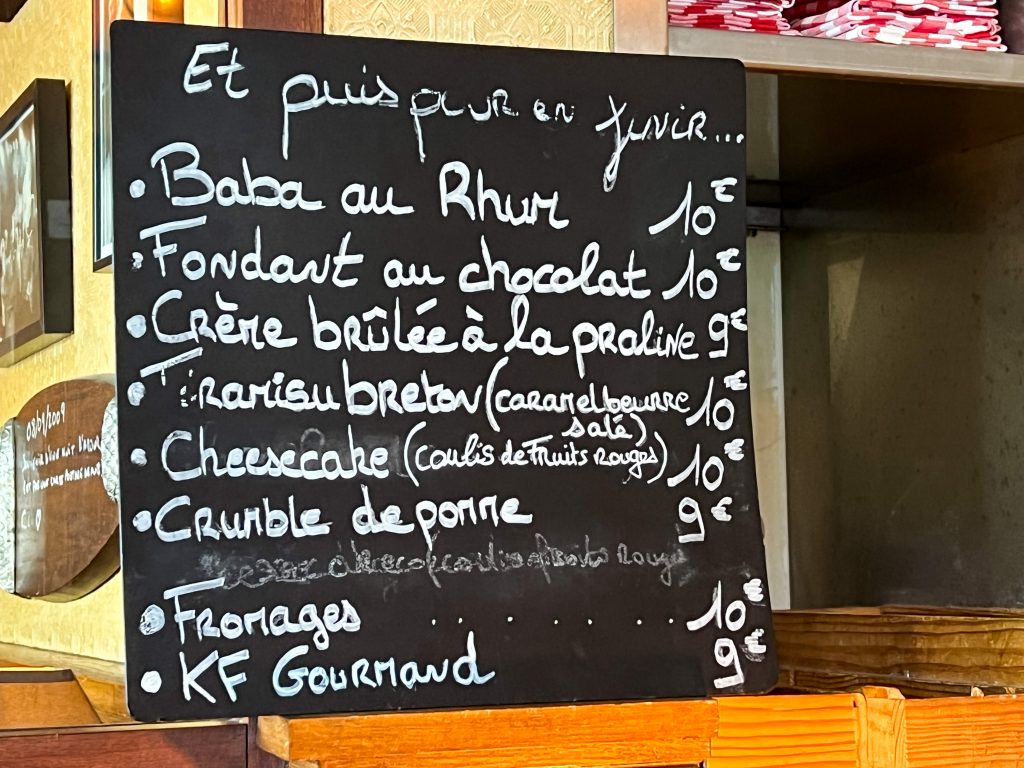 Et puis pour en finir...
• Baba au Rhum 10€
• Fondant au chocolat 10€
• Crème brûlée à la praline 9€
• Tiramisu breton (caramel beurre 10€
salé)
• Cheesecake (coulis de Fruits Rouges) 10€
• Crumble de pomme 9€
• Fromages ........ 10€
• KF Gourmand 9€
03/01/2009